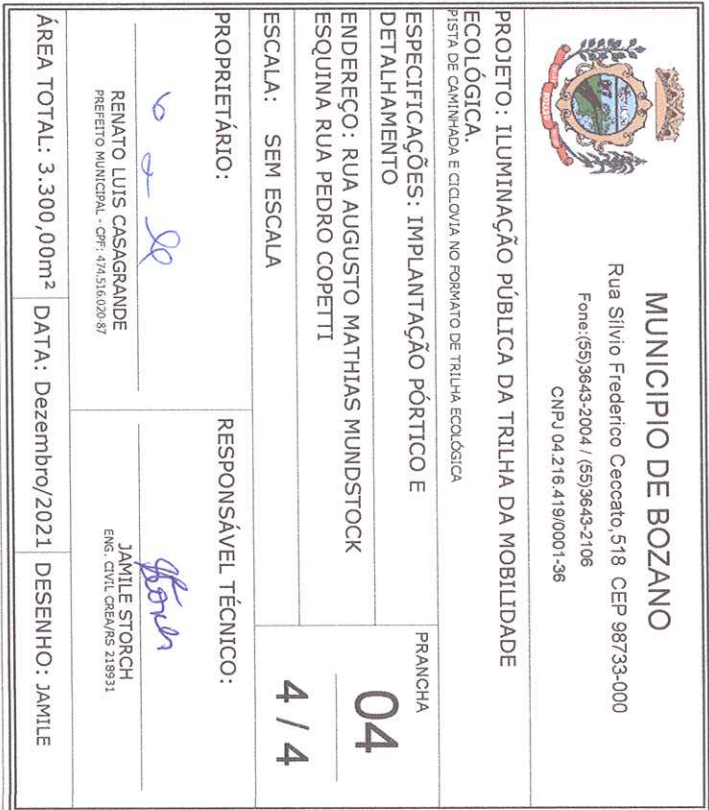 MUNICIPIO DE BOZANO
Rua Sílvio Frederico Ceccato,518 CEP 98733-000
Fone:(55)3643-2004 / (55)3643-2106
CNPJ 04.216.419/0001-36
PROJETO: ILUMINAÇÃO PÚBLICA DA TRILHA DA MOBILIDADE
ECOLÓGICA.
PISTA DE CAMINHADA E CICLOVIA NO FORMATO DE TRILHA ECOLÓGICA
ESPECIFICAÇÕES: IMPLANTAÇÃO PÓRTICO E
DETALHAMENTO
ENDEREÇO: RUA AUGUSTO MATHIAS MUNDSTOCK
ESQUINA RUA PEDRO COPETTI
ESCALA: SEM ESCALA
PRANCHA
04
4 / 4
PROPRIETÁRIO:
RENATO LUIS CASAGRANDE
PREFEITO MUNICIPAL - CPF: 474.516.020-87
RESPONSÁVEL TÉCNICO:
Storch
JAMILE STORCH
ENG. CIVIL CREA/RS 218931
ÁREA TOTAL: 3.300,00m²
DATA: Dezembro/2021
DESENHO: JAMILE